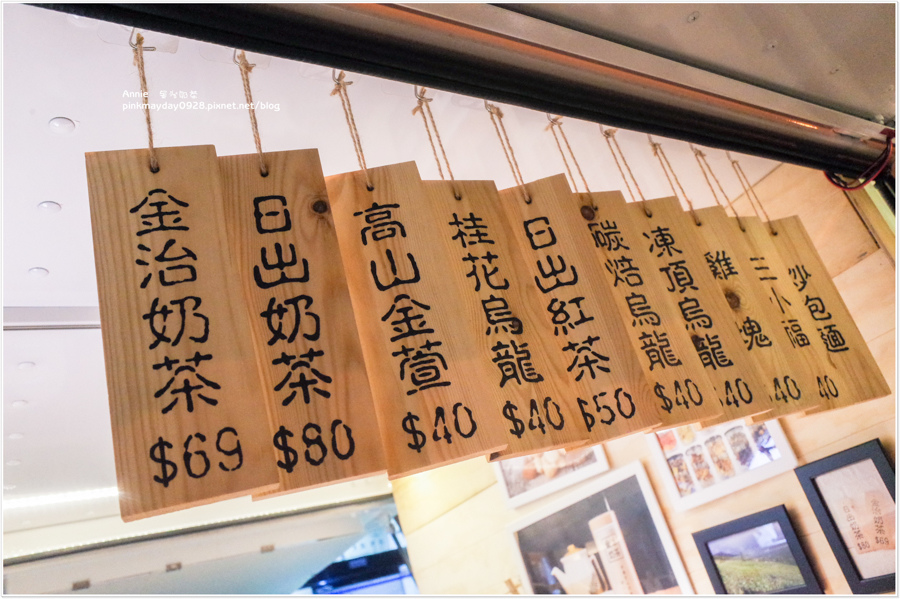 Annie
pinkmayday0928.pixnet.net/blog
金治奶茶
$69
日出奶茶
$80
高山金萱
$40
桂花烏龍
$40
日出紅茶
$50
碳焙烏龍
$40
凍頂烏龍
$40
雞塊
$40
三小福
40
沙包麵
40